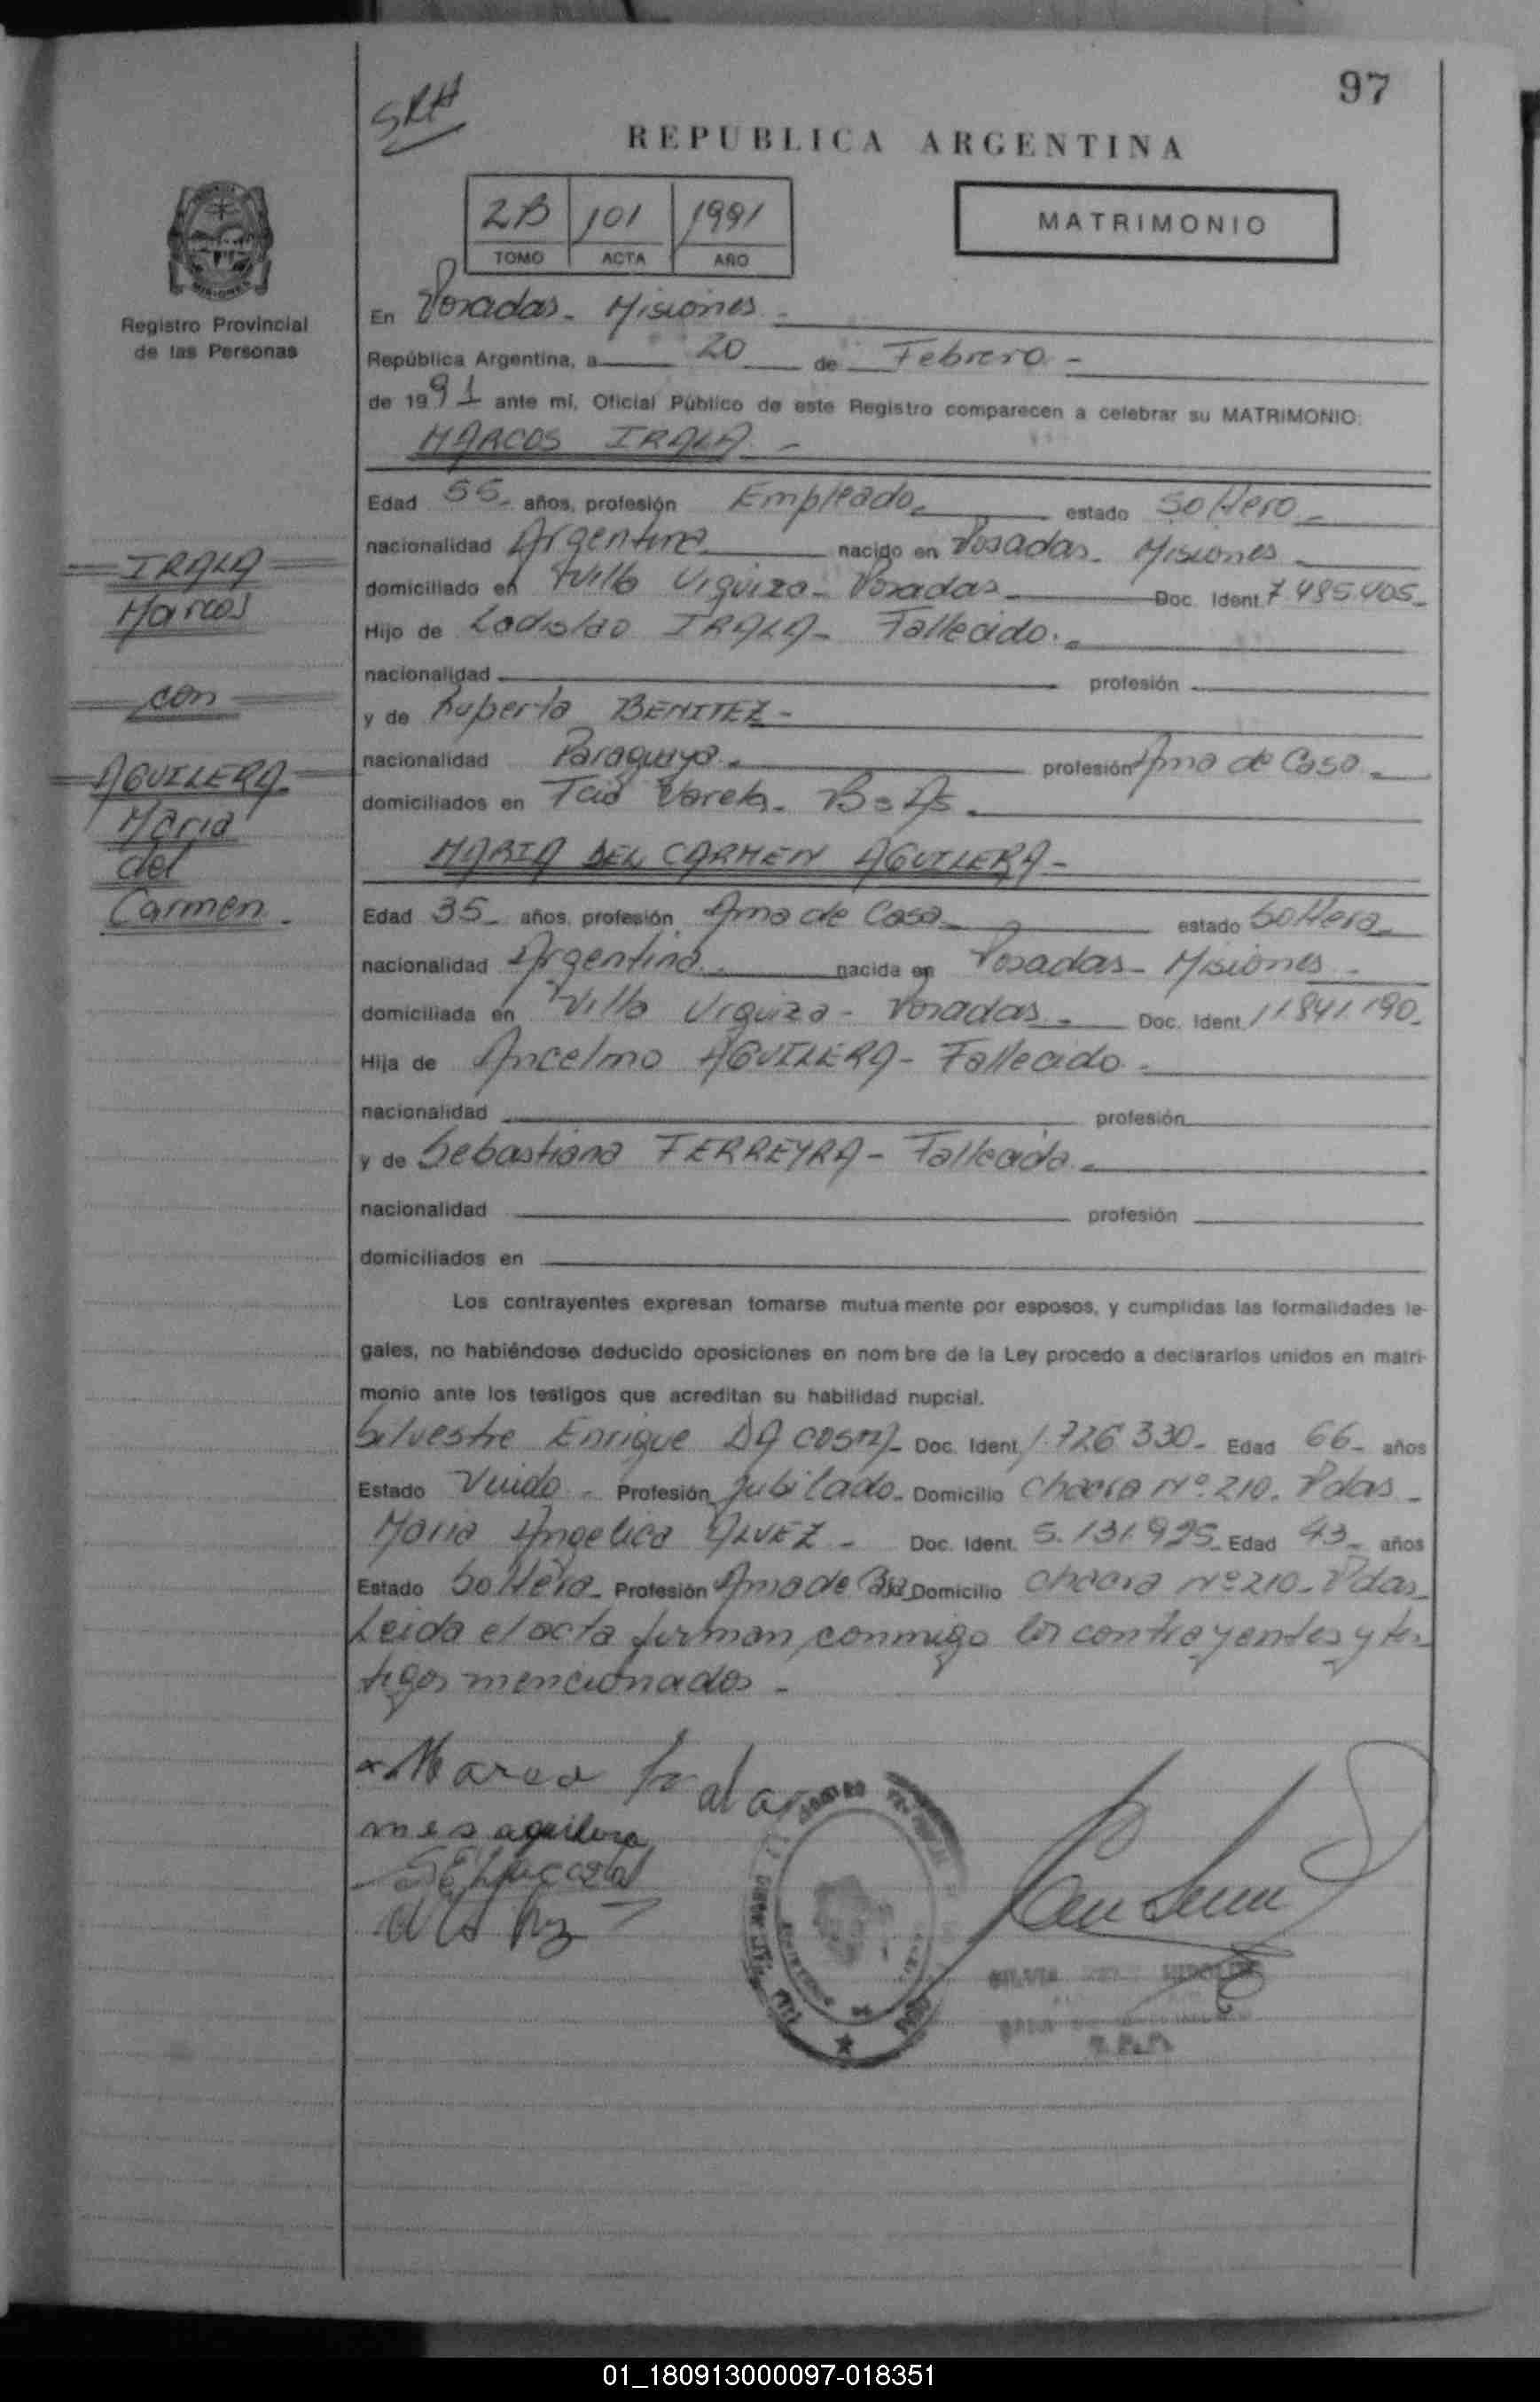 97
SRH
REPUBLICA ARGENTINA
2B 101 1991
TOMO ACTA AÑO
MATRIMONIO
MISIONES
Registro Provincial
de las Personas
En Posadas - Misiones -
República Argentina, a 20 de Febrero -
de 1991 ante mí, Oficial Público de este Registro comparecen a celebrar su MATRIMONIO:
MARCOS IRALA -
Edad 55 - años, profesión Empleado - estado Soltero -
nacionalidad Argentina nacido en Posadas - Misiones -
domiciliado en Villa Urquiza - Posadas - Doc. Ident. 7.485.405 -
Hijo de Ladislao IRALA - Fallecido. -
nacionalidad profesión
y de Ruperta BENITEZ -
nacionalidad Paraguaya - profesión Ama de Casa -
domiciliados en Varela - Bs As -
MARIA DEL CARMEN AGUILERA -
Edad 35 - años, profesión Ama de Casa - estado Soltera -
nacionalidad Argentina - nacida en Posadas - Misiones -
domiciliada en Villa Urquiza - Posadas - Doc. Ident. 11.841.190 -
Hija de Ancelmo AGUILERA - Fallecido -
nacionalidad profesión
y de Sebastiana FERREYRA - Fallecida -
nacionalidad profesión
domiciliados en
Los contrayentes expresan tomarse mutua mente por esposos, y cumplidas las formalidades le-
gales, no habiéndose deducido oposiciones en nom bre de la Ley procedo a declararlos unidos en matri-
monio ante los testigos que acreditan su habilidad nupcial.
Silvestre Enrique DA COSTA - Doc. Ident. 1.726.330 - Edad 66 - años
Estado Viudo - Profesión Jubilado - Domicilio Chacra Nº 210. Pdas -
Maria Angelica ALVEZ - Doc. Ident. 5.131.925 - Edad 43 - años
Estado Soltera - Profesión Ama de Domicilio Chacra Nº 210 - Pdas -
Leida el acta firman conmigo los contrayentes y tes-
tigos mencionados -
IRALA
Marcos
con
AGUILERA
Maria
del
Carmen -
Marco Irala
aguilera
SILVIA
01_180913000097-018351